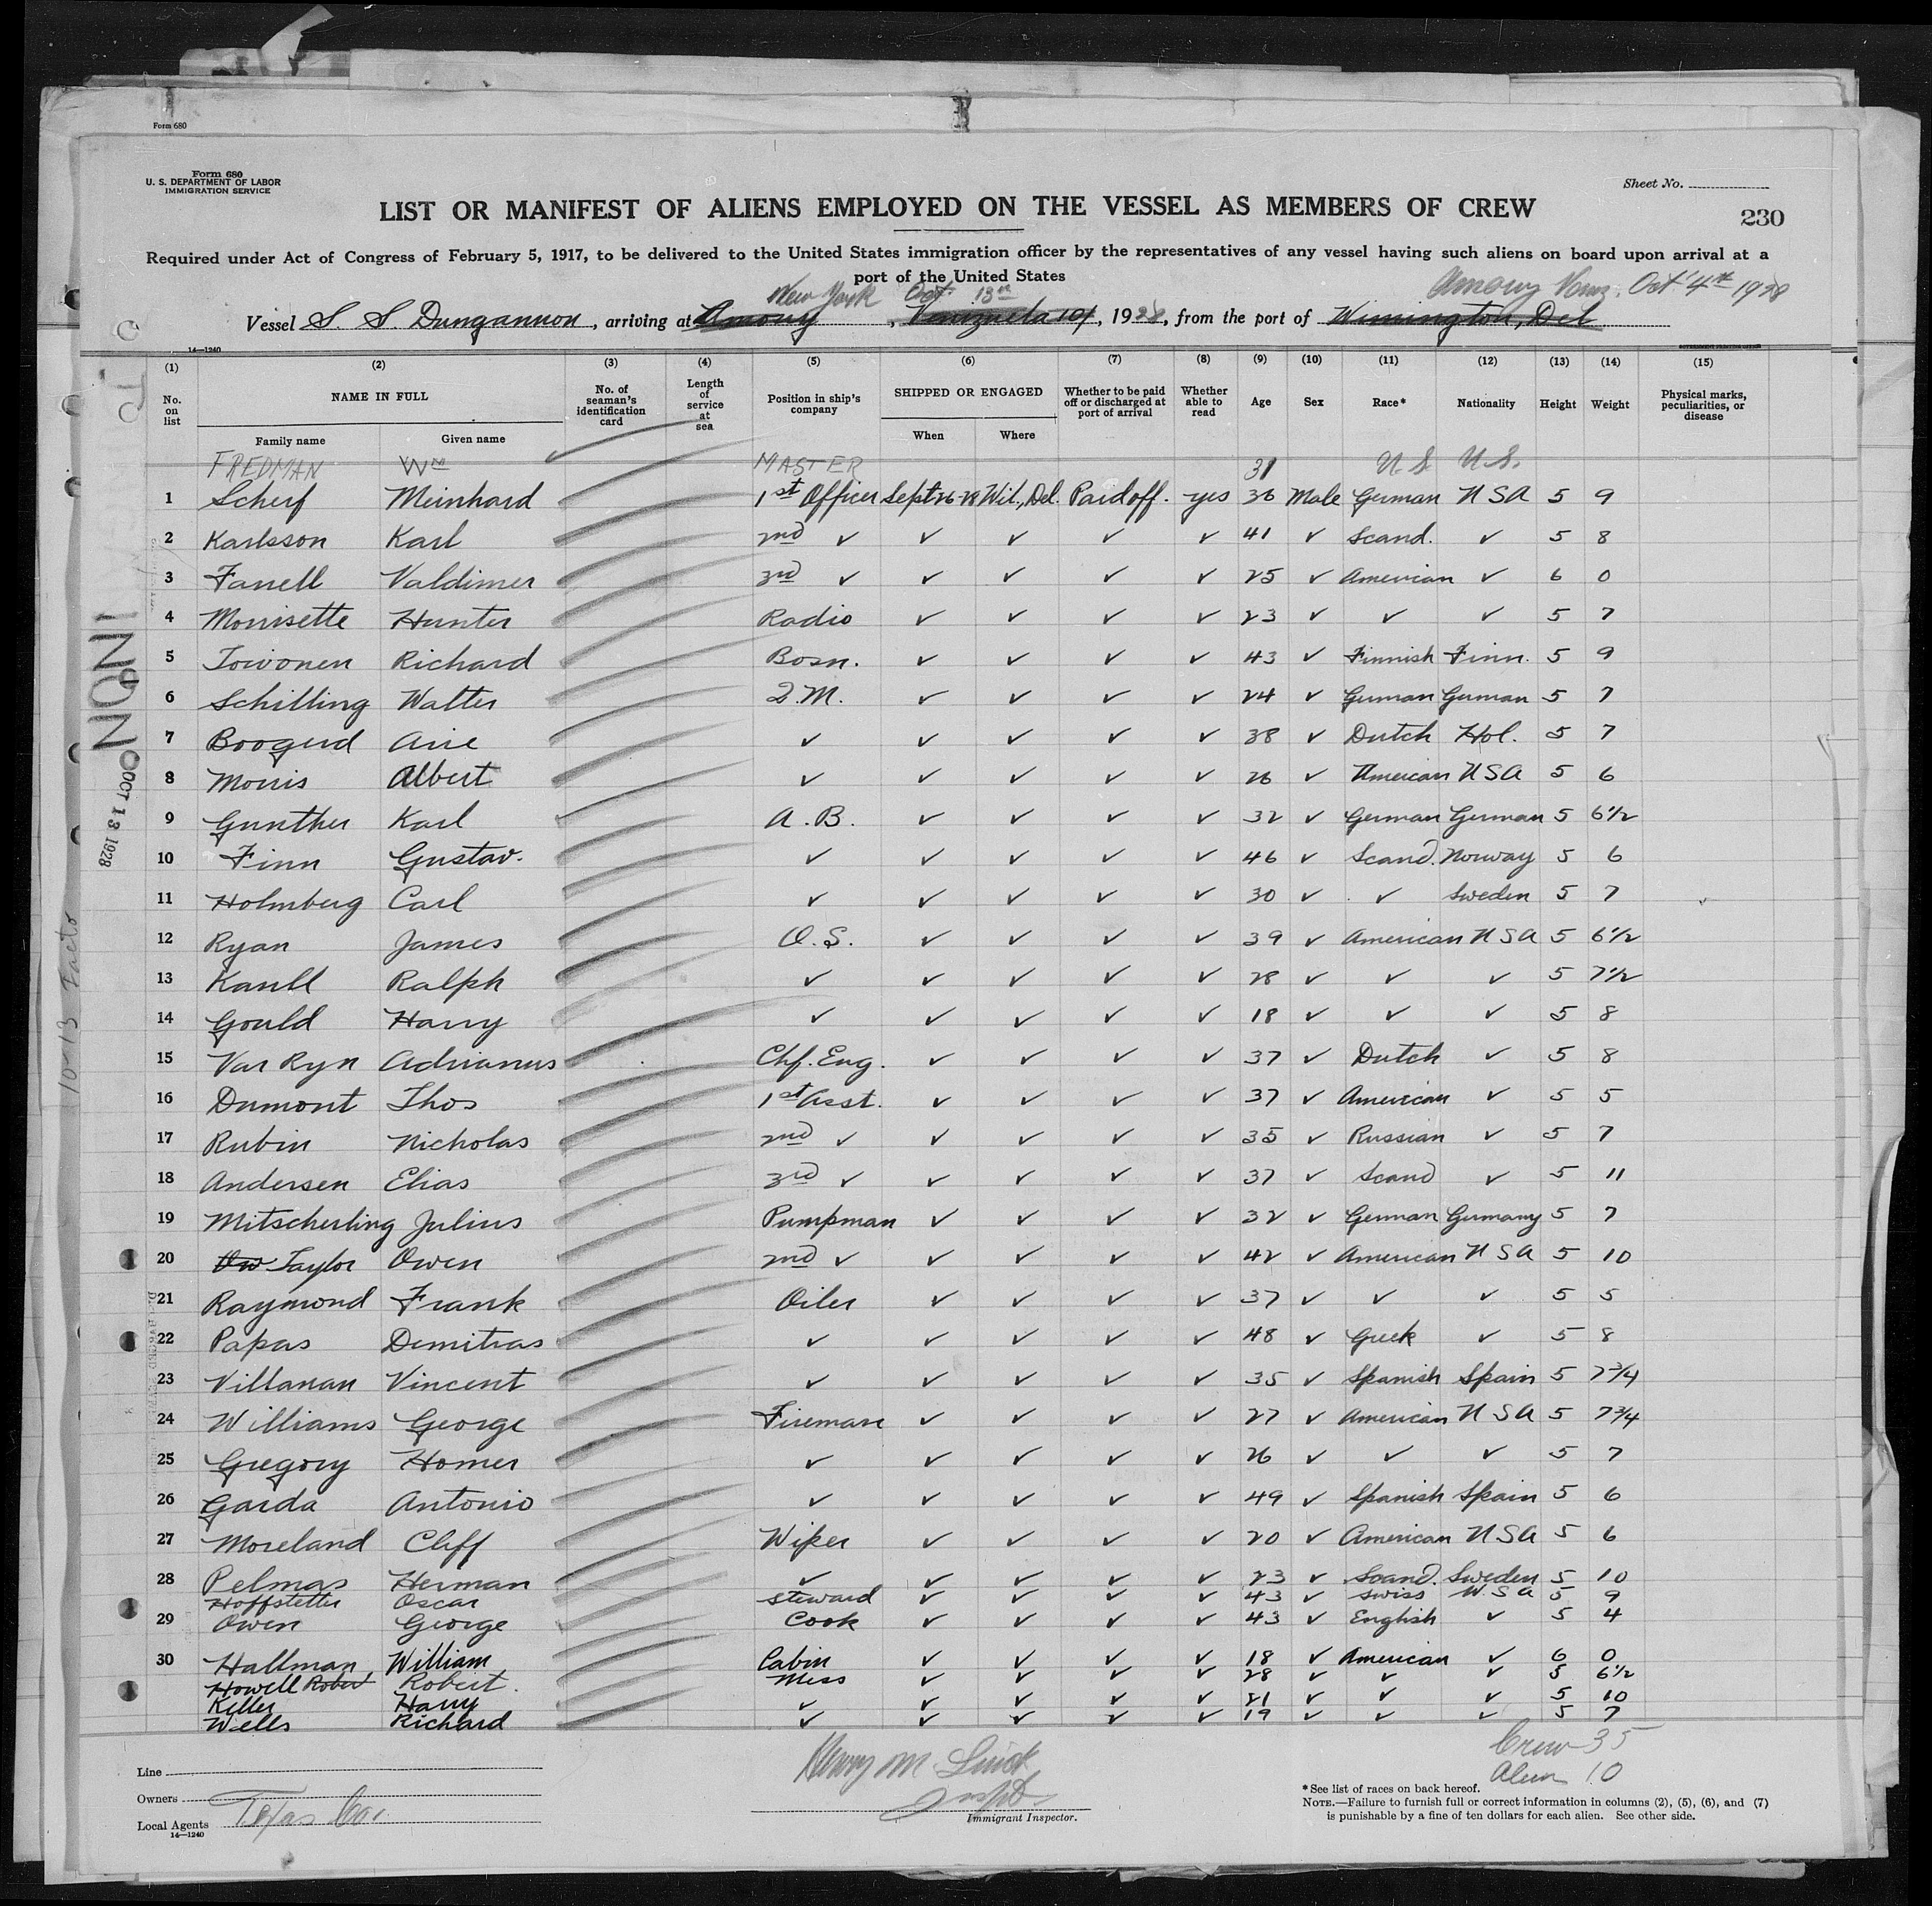 Form 680
Form 680
U. S. DEPARTMENT OF LABOR
IMMIGRATION SERVICE
Sheet No.
LIST OR MANIFEST OF ALIENS EMPLOYED ON THE VESSEL AS MEMBERS OF CREW
230
Required under Act of Congress of February 5, 1917, to be delivered to the United States immigration officer by the representatives of any vessel having such aliens on board upon arrival at a
port of the United States
New York Oct. 13th Amouy Venz. Oct 4th 1928
Vessel S. S. Dungannon, arriving at Amouy, Venezuela 10/, 1928, from the port of Wimington, Del
14—1240
(1) (2) (3) (4) (5) (6) (7) (8) (9) (10) (11) (12) (13) (14) (15)
No. on list NAME IN FULL Family name Given name No. of seaman's identification card Length of service at sea Position in ship's company SHIPPED OR ENGAGED When Where Whether to be paid off or discharged at port of arrival Whether able to read Age Sex Race* Nationality Height Weight Physical marks, peculiarities, or disease
FREDMAN Wm MASTER 31 U.S U.S.
1 Scherf Meinhard 1st Officer Sept 26-28 Wil., Del. Paid off. yes 36 Male German USA 5 9
2 Karlsson Karl 2nd ✓ ✓ ✓ ✓ ✓ 41 ✓ Scand. ✓ 5 8
3 Fanell Valdimer 3rd ✓ ✓ ✓ ✓ ✓ 25 ✓ American ✓ 6 0
4 Morrisette Hunter Radio ✓ ✓ ✓ ✓ 23 ✓ ✓ ✓ 5 7
5 Toivonen Richard Bosn. ✓ ✓ ✓ ✓ 43 ✓ Finnish Finn. 5 9
6 Schilling Walter Q.M. ✓ ✓ ✓ ✓ 24 ✓ German German 5 7
7 Boogerd Arie ✓ ✓ ✓ ✓ ✓ 38 ✓ Dutch Hol. 5 7
8 Morris Albert ✓ ✓ ✓ ✓ ✓ 26 ✓ American USA 5 6
9 Gunther Karl A.B. ✓ ✓ ✓ ✓ 32 ✓ German German 5 6 1/2
10 Finn Gustav. ✓ ✓ ✓ ✓ ✓ 46 ✓ Scand. Norway 5 6
11 Holmberg Carl ✓ ✓ ✓ ✓ ✓ 30 ✓ ✓ Sweden 5 7
12 Ryan James O.S. ✓ ✓ ✓ ✓ 39 ✓ American USA 5 6 1/2
13 Kanll Ralph ✓ ✓ ✓ ✓ ✓ 28 ✓ ✓ ✓ 5 7 1/2
14 Gould Harry ✓ ✓ ✓ ✓ ✓ 18 ✓ ✓ ✓ 5 8
15 Van Ryn Adrianus Chf. Eng. ✓ ✓ ✓ ✓ 37 ✓ Dutch ✓ 5 8
16 Dumont Thos 1st Asst. ✓ ✓ ✓ ✓ 37 ✓ American ✓ 5 5
17 Rubin Nicholas 2nd ✓ ✓ ✓ ✓ ✓ 35 ✓ Russian ✓ 5 7
18 Andersen Elias 3rd ✓ ✓ ✓ ✓ ✓ 37 ✓ Scand ✓ 5 11
19 Mitscherling Julius Pumpman ✓ ✓ ✓ ✓ 32 ✓ German Germany 5 7
20 Ow Taylor Owen 2nd ✓ ✓ ✓ ✓ ✓ 42 ✓ American USA 5 10
21 Raymond Frank Oiler ✓ ✓ ✓ ✓ 37 ✓ ✓ ✓ 5 5
22 Papas Demitras ✓ ✓ ✓ ✓ ✓ 48 ✓ Greek ✓ 5 8
23 Villanan Vincent ✓ ✓ ✓ ✓ ✓ 35 ✓ Spanish Spain 5 7 3/4
24 Williams George Fireman ✓ ✓ ✓ ✓ 27 ✓ American USA 5 7 3/4
25 Gregory Homer ✓ ✓ ✓ ✓ ✓ 26 ✓ ✓ ✓ 5 7
26 Garda Antonio ✓ ✓ ✓ ✓ ✓ 49 ✓ Spanish Spain 5 6
27 Moreland Cliff Wiper ✓ ✓ ✓ ✓ 20 ✓ American USA 5 6
28 Pelmas Herman ✓ ✓ ✓ ✓ ✓ 23 ✓ Scand. Sweden 5 10
Hoffstetter Oscar Steward ✓ ✓ ✓ ✓ 43 ✓ Swiss U.S A 5 9
29 Owen George Cook ✓ ✓ ✓ ✓ 43 ✓ English ✓ 5 4
30 Hallman William Cabin ✓ ✓ ✓ ✓ 18 ✓ American ✓ 6 0
Howell Robert Robert. Mess ✓ ✓ ✓ ✓ 28 ✓ ✓ ✓ 5 6 1/2
Keller Harry ✓ ✓ ✓ ✓ ✓ 21 ✓ ✓ ✓ 5 10
Wells Richard ✓ ✓ ✓ ✓ ✓ 19 ✓ ✓ ✓ 5 7
OCT 13 1928
10-13
Crew 35
Alien 10
Line
Owners Texas Co.
Local Agents
14—1240
Henry M
Immigrant Inspector.
*See list of races on back hereof.
NOTE.—Failure to furnish full or correct information in columns (2), (5), (6), and (7)
is punishable by a fine of ten dollars for each alien. See other side.